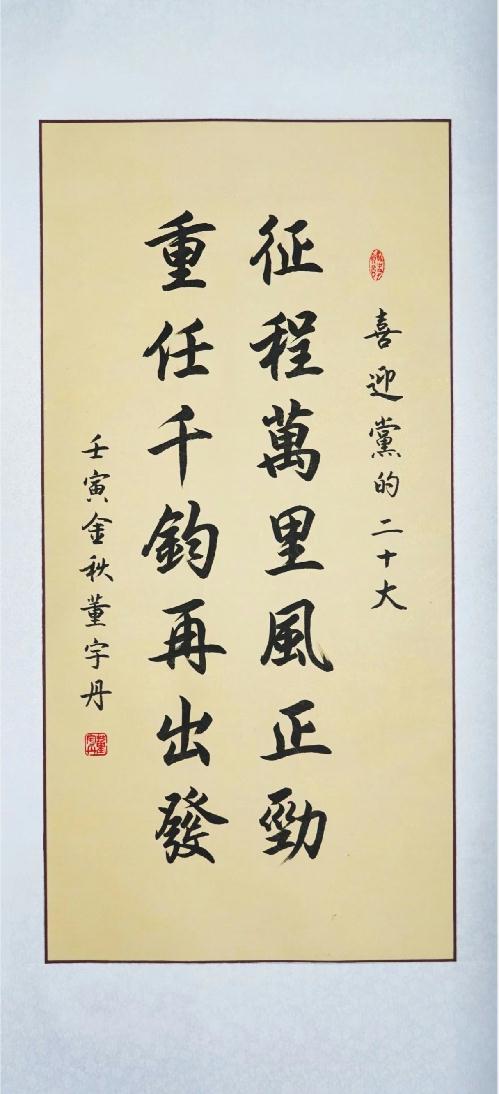 喜迎黨的二十大
征程萬里風正勁
重任千鈞再出發
壬寅金秋董宇丹